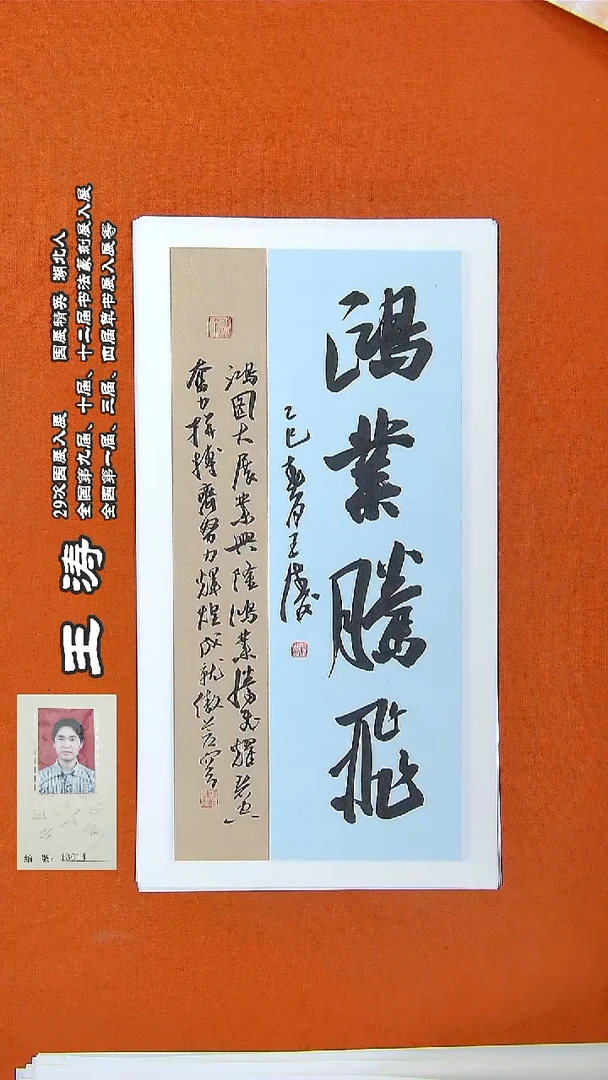 鴻業騰飛
乙巳春月王涛
鴻图大展業興隆鴻業騰飛耀
奮力拼搏齊努力輝煌成就傲蒼穹
王涛
29次国展入展 国展精英 湖北人
全国第九届、十届、十二届书法篆刻展入展
全国第一届、三届、四届草书展入展等
编 号: